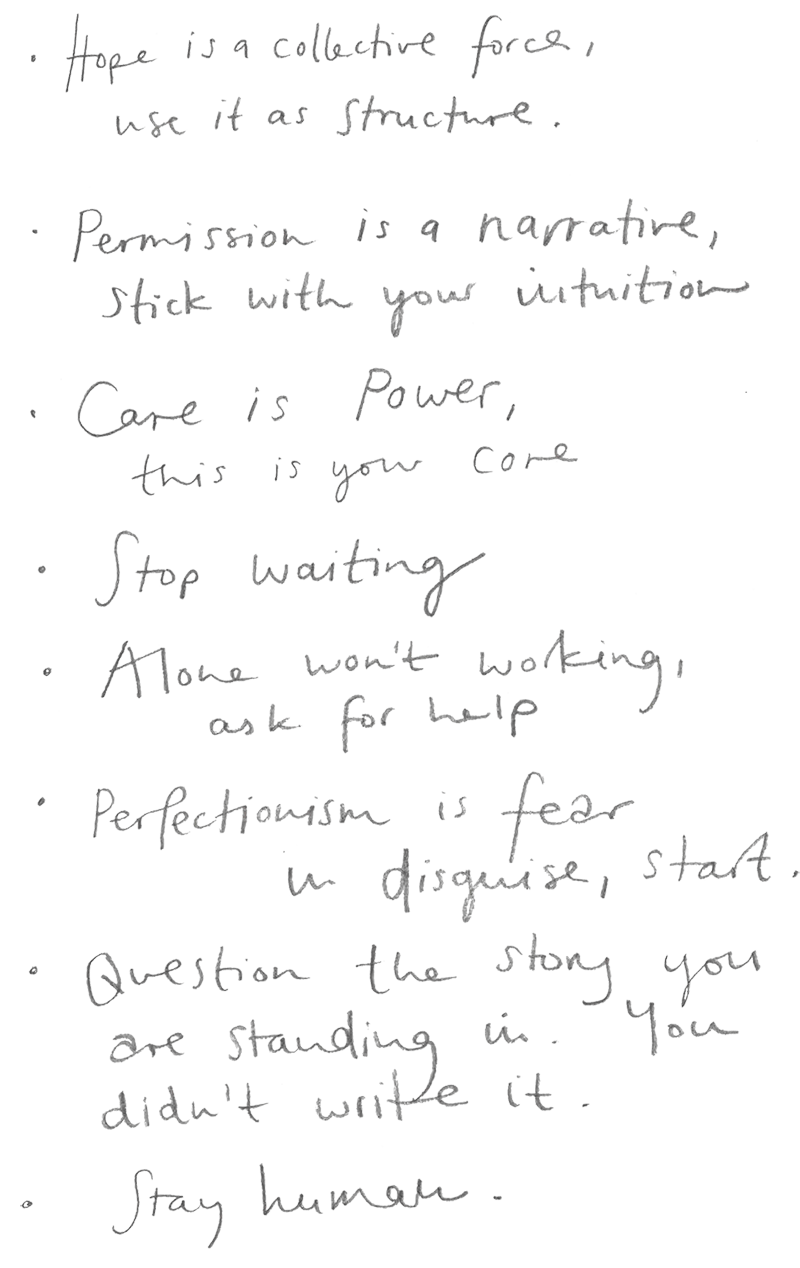 · Hope is a collective force,
use it as structure.
· Permission is a narrative,
stick with your intuition
· Care is Power,
this is your core
· Stop waiting
· Alone won't working,
ask for help
· Perfectionism is fear
in disguise, start.
· Question the story you
are standing in. You
didn't write it.
· Stay human.